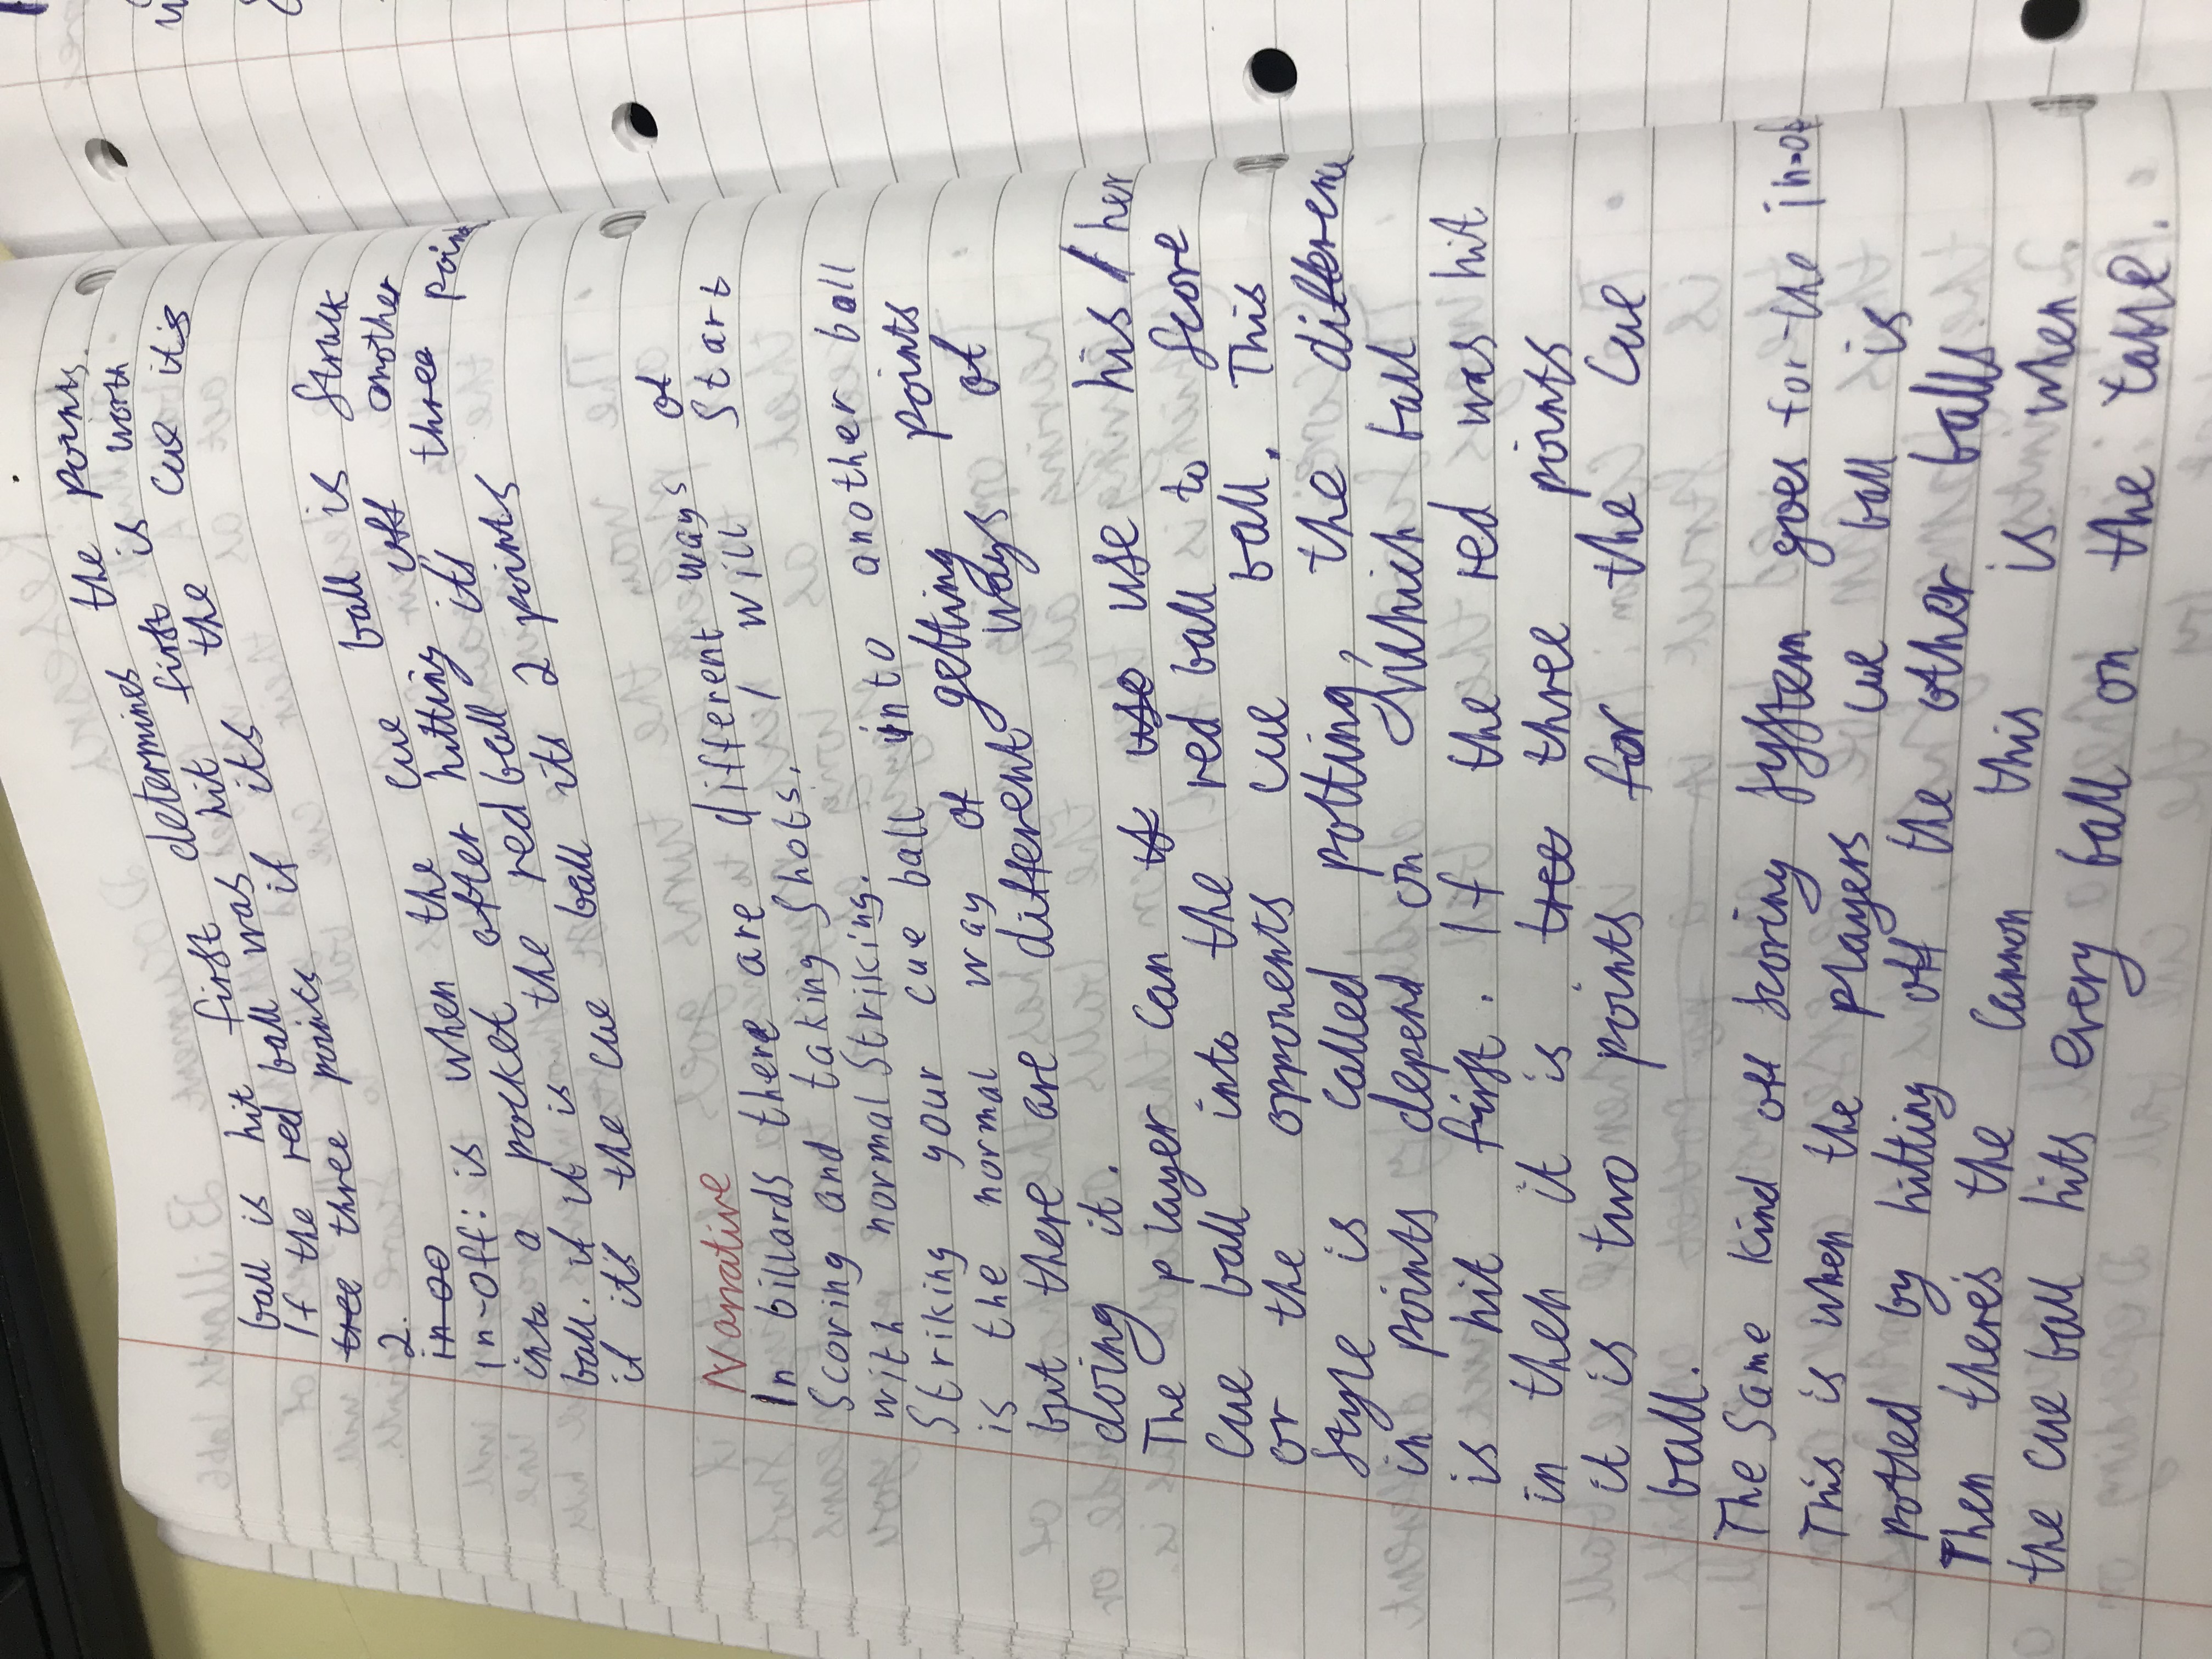 ball is hit first determines the points.
If the red ball was hit first is worth
tree three points if its the cue it's
2.
in oo
In-off: is when the cue ball is struck
into a pocket after hitting off another
ball. if it is the red ball its three poin
if it's the cue ball its 2 points
Narrative
In billards there are different ways of
Scoring and taking shots. I will start
with normal Striking.
Striking your cue ball into another ball
is the normal way of getting points
but there are different ways of
doing it.
The player can use use his / her
cue ball into the red ball to score
or the opponents cue ball. This
style is called potting, the difference
in points depend on which ball
is hit first. If the red was hit
in then it is tree three points
it is two points for the cue
ball.
The Same kind off scoring system goes for the in-of
This is when the players cue ball is
potted by hitting off the other balls
Then there's the cannon this is when
the cue ball hits every ball on the table.